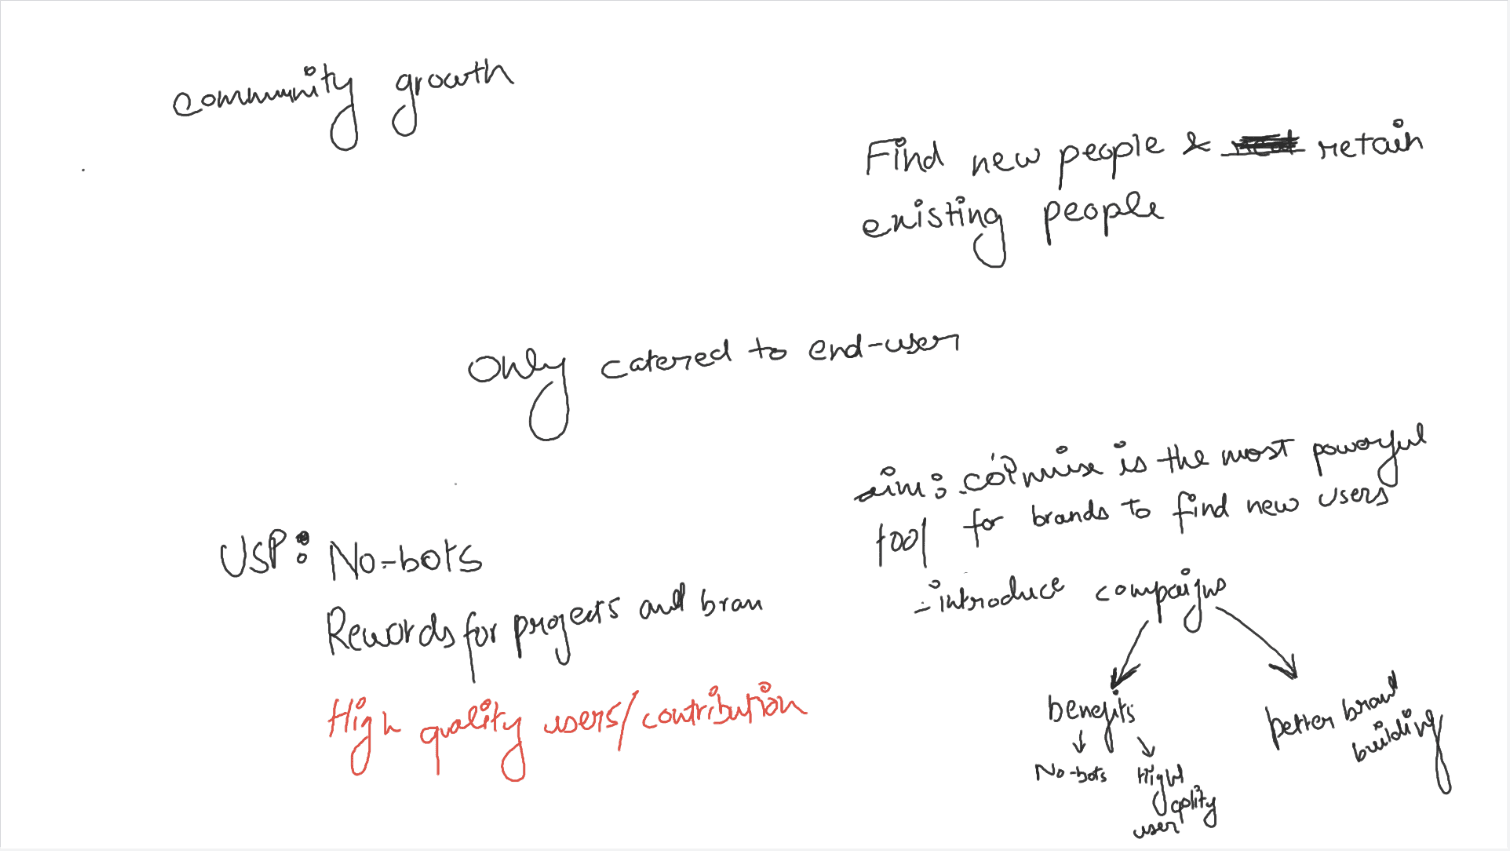 community growth
Find new people & retain
existing people
Only catered to end-user
aim: is the most powerful
tool for brands to find new users
USP: No-bots
Rewards for projects and bran
High quality users/contribution
- introduce compaigns
benefits
better brand
building
No-bots
High
qolity
user